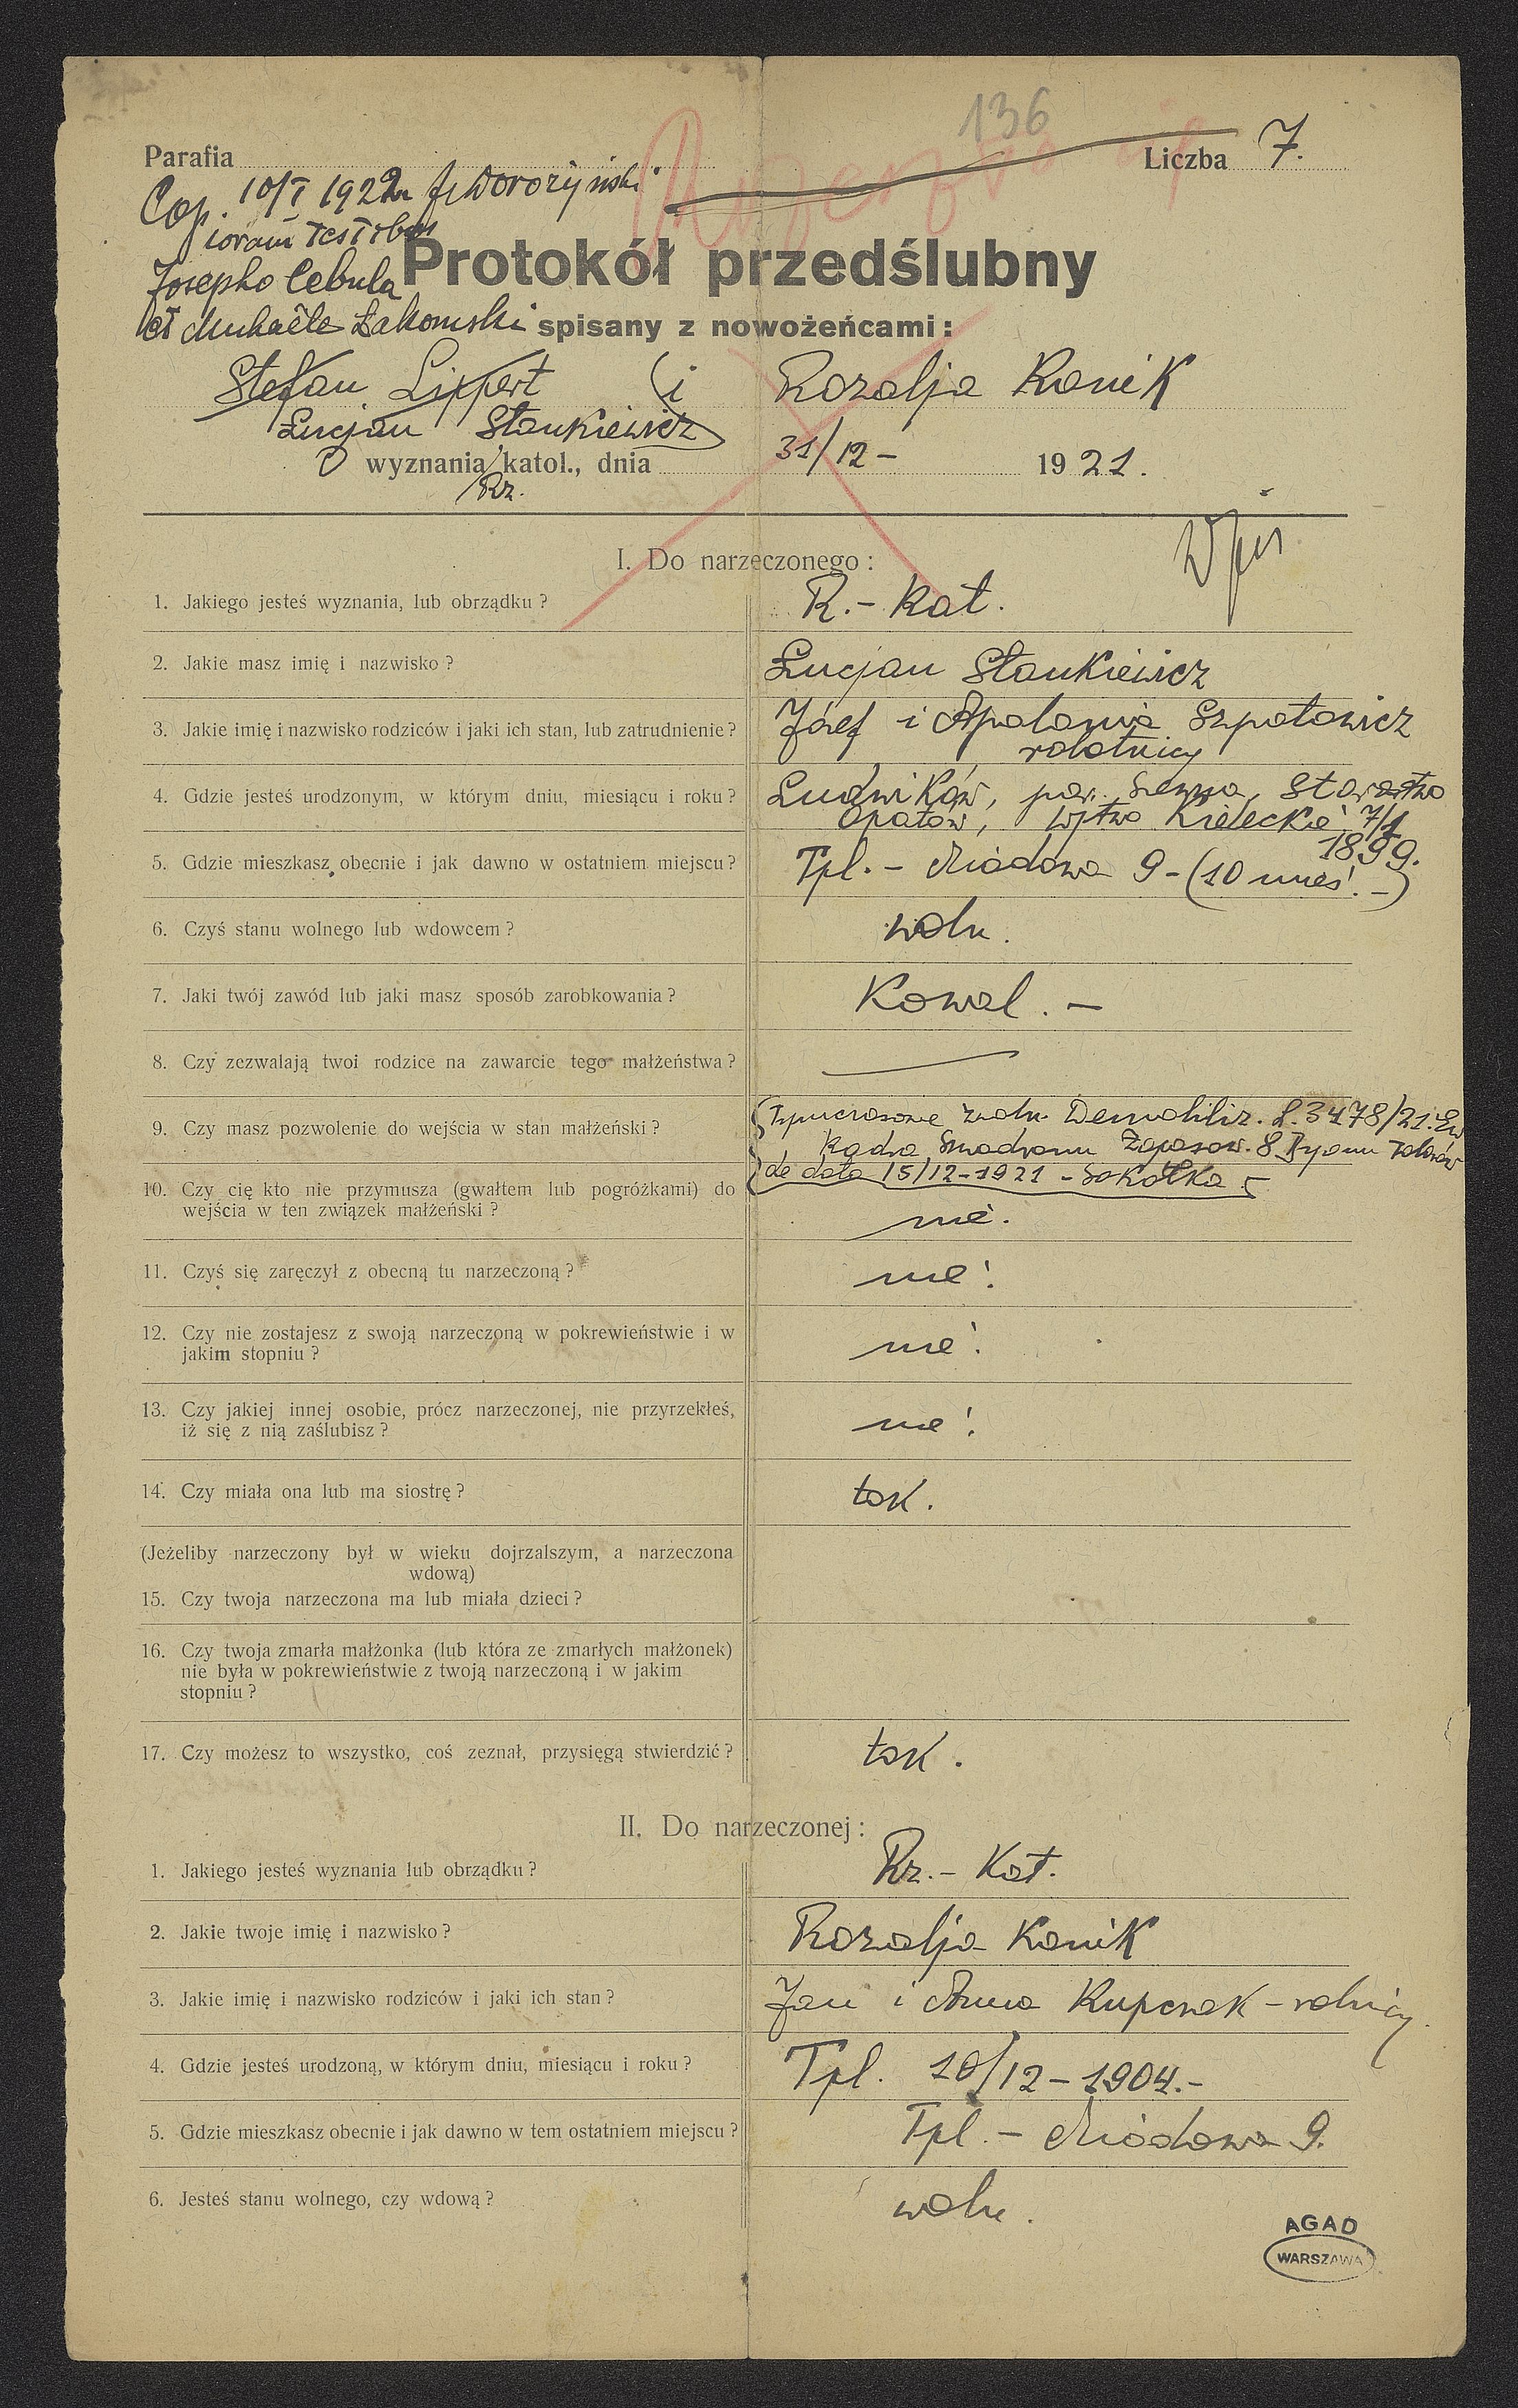 136
Parafia
Liczba 7.
Cop. 10/I 1922
coram testibus
Protokół przedślubny
Josepho Cebula
et Michaële Żakowski spisany z nowożeńcami:
Stefan Lippert i Rozalja Konik
Lucjan Stankiewicz
wyznania katol., dnia 31/12 - 1921.
Rz.
I. Do narzeczonego:
1. Jakiego jesteś wyznania, lub obrządku? R.- Kat.
2. Jakie masz imię i nazwisko? Lucjan Stankiewicz
3. Jakie imię i nazwisko rodziców i jaki ich stan, lub zatrudnienie? Józef i Apolonia Szpotowicz
robotnicy
4. Gdzie jesteś urodzonym, w którym dniu, miesiącu i roku? Ludwików, par. Starostwo
Opatów, Wjtwo Kieleckie 7/1
1899.
5. Gdzie mieszkasz obecnie i jak dawno w ostatniem miejscu? Tpl. - Miodowa 9 - (10 mies. -)
6. Czyś stanu wolnego lub wdowcem? woln.
7. Jaki twój zawód lub jaki masz sposób zarobkowania? Kowal. -
8. Czy zezwalają twoi rodzice na zawarcie tego małżeństwa?
9. Czy masz pozwolenie do wejścia w stan małżeński? Tymczasowe zwoln. Demobiliz. L. 3478/21.
Kadra Zapasow. 8
de dato 15/12-1921 - Sokółka
10. Czy cię kto nie przymusza (gwałtem lub pogróżkami) do
wejścia w ten związek małżeński? nie.
11. Czyś się zaręczył z obecną tu narzeczoną? nie.
12. Czy nie zostajesz z swoją narzeczoną w pokrewieństwie i w
jakim stopniu? nie.
13. Czy jakiej innej osobie, prócz narzeczonej, nie przyrzekłeś,
iż się z nią zaślubisz? nie.
14. Czy miała ona lub ma siostrę? tak.
(Jeżeliby narzeczony był w wieku dojrzalszym, a narzeczona
wdową)
15. Czy twoja narzeczona ma lub miała dzieci?
16. Czy twoja zmarła małżonka (lub która ze zmarłych małżonek)
nie była w pokrewieństwie z twoją narzeczoną i w jakim
stopniu?
17. Czy możesz to wszystko, coś zeznał, przysięgą stwierdzić? tak.
II. Do narzeczonej:
1. Jakiego jesteś wyznania lub obrządku? Rz.- Kat.
2. Jakie twoje imię i nazwisko? Rozalja Konik
3. Jakie imię i nazwisko rodziców i jaki ich stan? Jan i Anna Kupczak - rolnicy.
4. Gdzie jesteś urodzoną, w którym dniu, miesiącu i roku? Tpl. 10/12 - 1904.-
5. Gdzie mieszkasz obecnie i jak dawno w tem ostatniem miejscu? Tpl. - Miodowa 9.
6. Jesteś stanu wolnego, czy wdową? woln.
AGAD
WARSZAWA